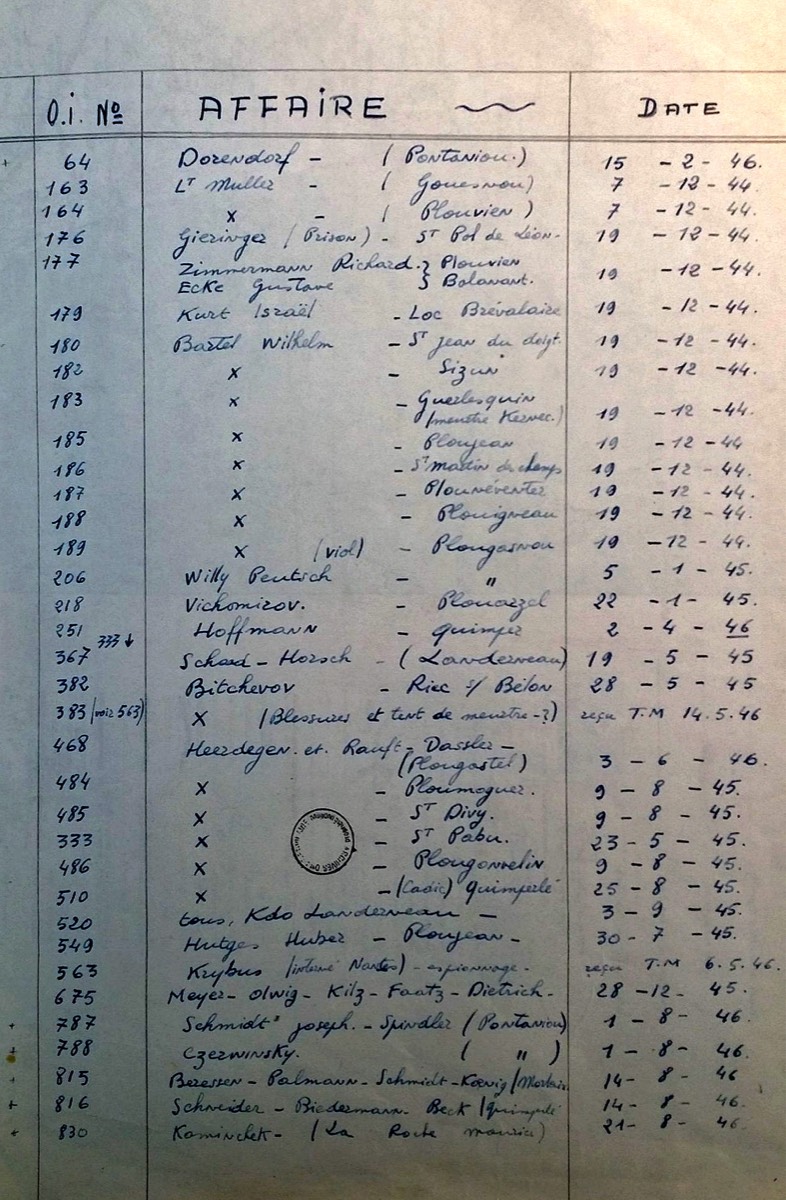 O.i. Nº AFFAIRE DATE
+ 64 Dorendorf - (Pontaniou.) 15 - 2 - 46.
163 Lt Muller - (Gouesnou) 7 - 12 - 44.
164 x - (Plouvien) 7 - 12 - 44.
176 Gieringer (Prison) - St Pol de Léon. 19 - 12 - 44.
177 Zimmermann Richard. } Plouvien 19 - 12 - 44.
Ecke Gustave } Bolanant.
179 Kurt Israël - Loc Brévalaire 19 - 12 - 44.
180 Bartel Wilhelm - St jean du doigt. 19 - 12 - 44.
182 x - Sizun 19 - 12 - 44.
183 x - Guerlesquin 19 - 12 - 44.
(meurtre Kervec.)
185 x - Ploujean 19 - 12 - 44
186 x - St martin des champs 19 - 12 - 44.
187 x - Plounéventer 19 - 12 - 44.
188 x - Plouigneau 19 - 12 - 44.
189 x (viol) - Plougasnou 19 - 12 - 44.
206 Willy Peutsch - " 5 - 1 - 45.
218 Vichomirov. - Plouarzel 22 - 1 - 45.
251 Hoffmann - quimper 2 - 4 - 46
333 ↓
367 Schard - Horsch - (Landerneau) 19 - 5 - 45
382 Bitchevov - Riec s/ Bélon 28 - 5 - 45
383 (voir 563) X (Blessures et tent de meurtre - ?) reçu T.M 14.5.46
468 Heerdegen. et. Rauft - Dassler -
(Plougastel) 3 - 6 - 46.
484 X - Ploumoguer. 9 - 8 - 45.
485 x - St Divy. 9 - 8 - 45.
333 x - St Pabu. 23 - 5 - 45.
486 x - Plougonvelin 9 - 8 - 45.
510 x - (Cadic) Quimperlé 25 - 8 - 45.
520 tous, Kdo Landerneau - 3 - 9 - 45.
549 Hutges Huber - Ploujean - 30 - 7 - 45.
563 Krybus (interné Nantes) - espionnage - reçu T.M 6.5.46.
675 Meyer - Olwig - Kilz - Faatz - Dietrich - 28 - 12 - 45.
+ 787 Schmidt joseph. - Spindler (Pontaniou) 1 - 8 - 46
+ 788 Czerwinsky. ( " ) 1 - 8 - 46.
+ 815 Beressen - Palmann - Schmidt - Kœnig (Morlaix 14 - 8 - 46
+ 816 Schneider - Biedermann - Beck (quimperlé 14 - 8 - 46.
+ 830 Kaminchek - (La Roche maurice) 21 - 8 - 46